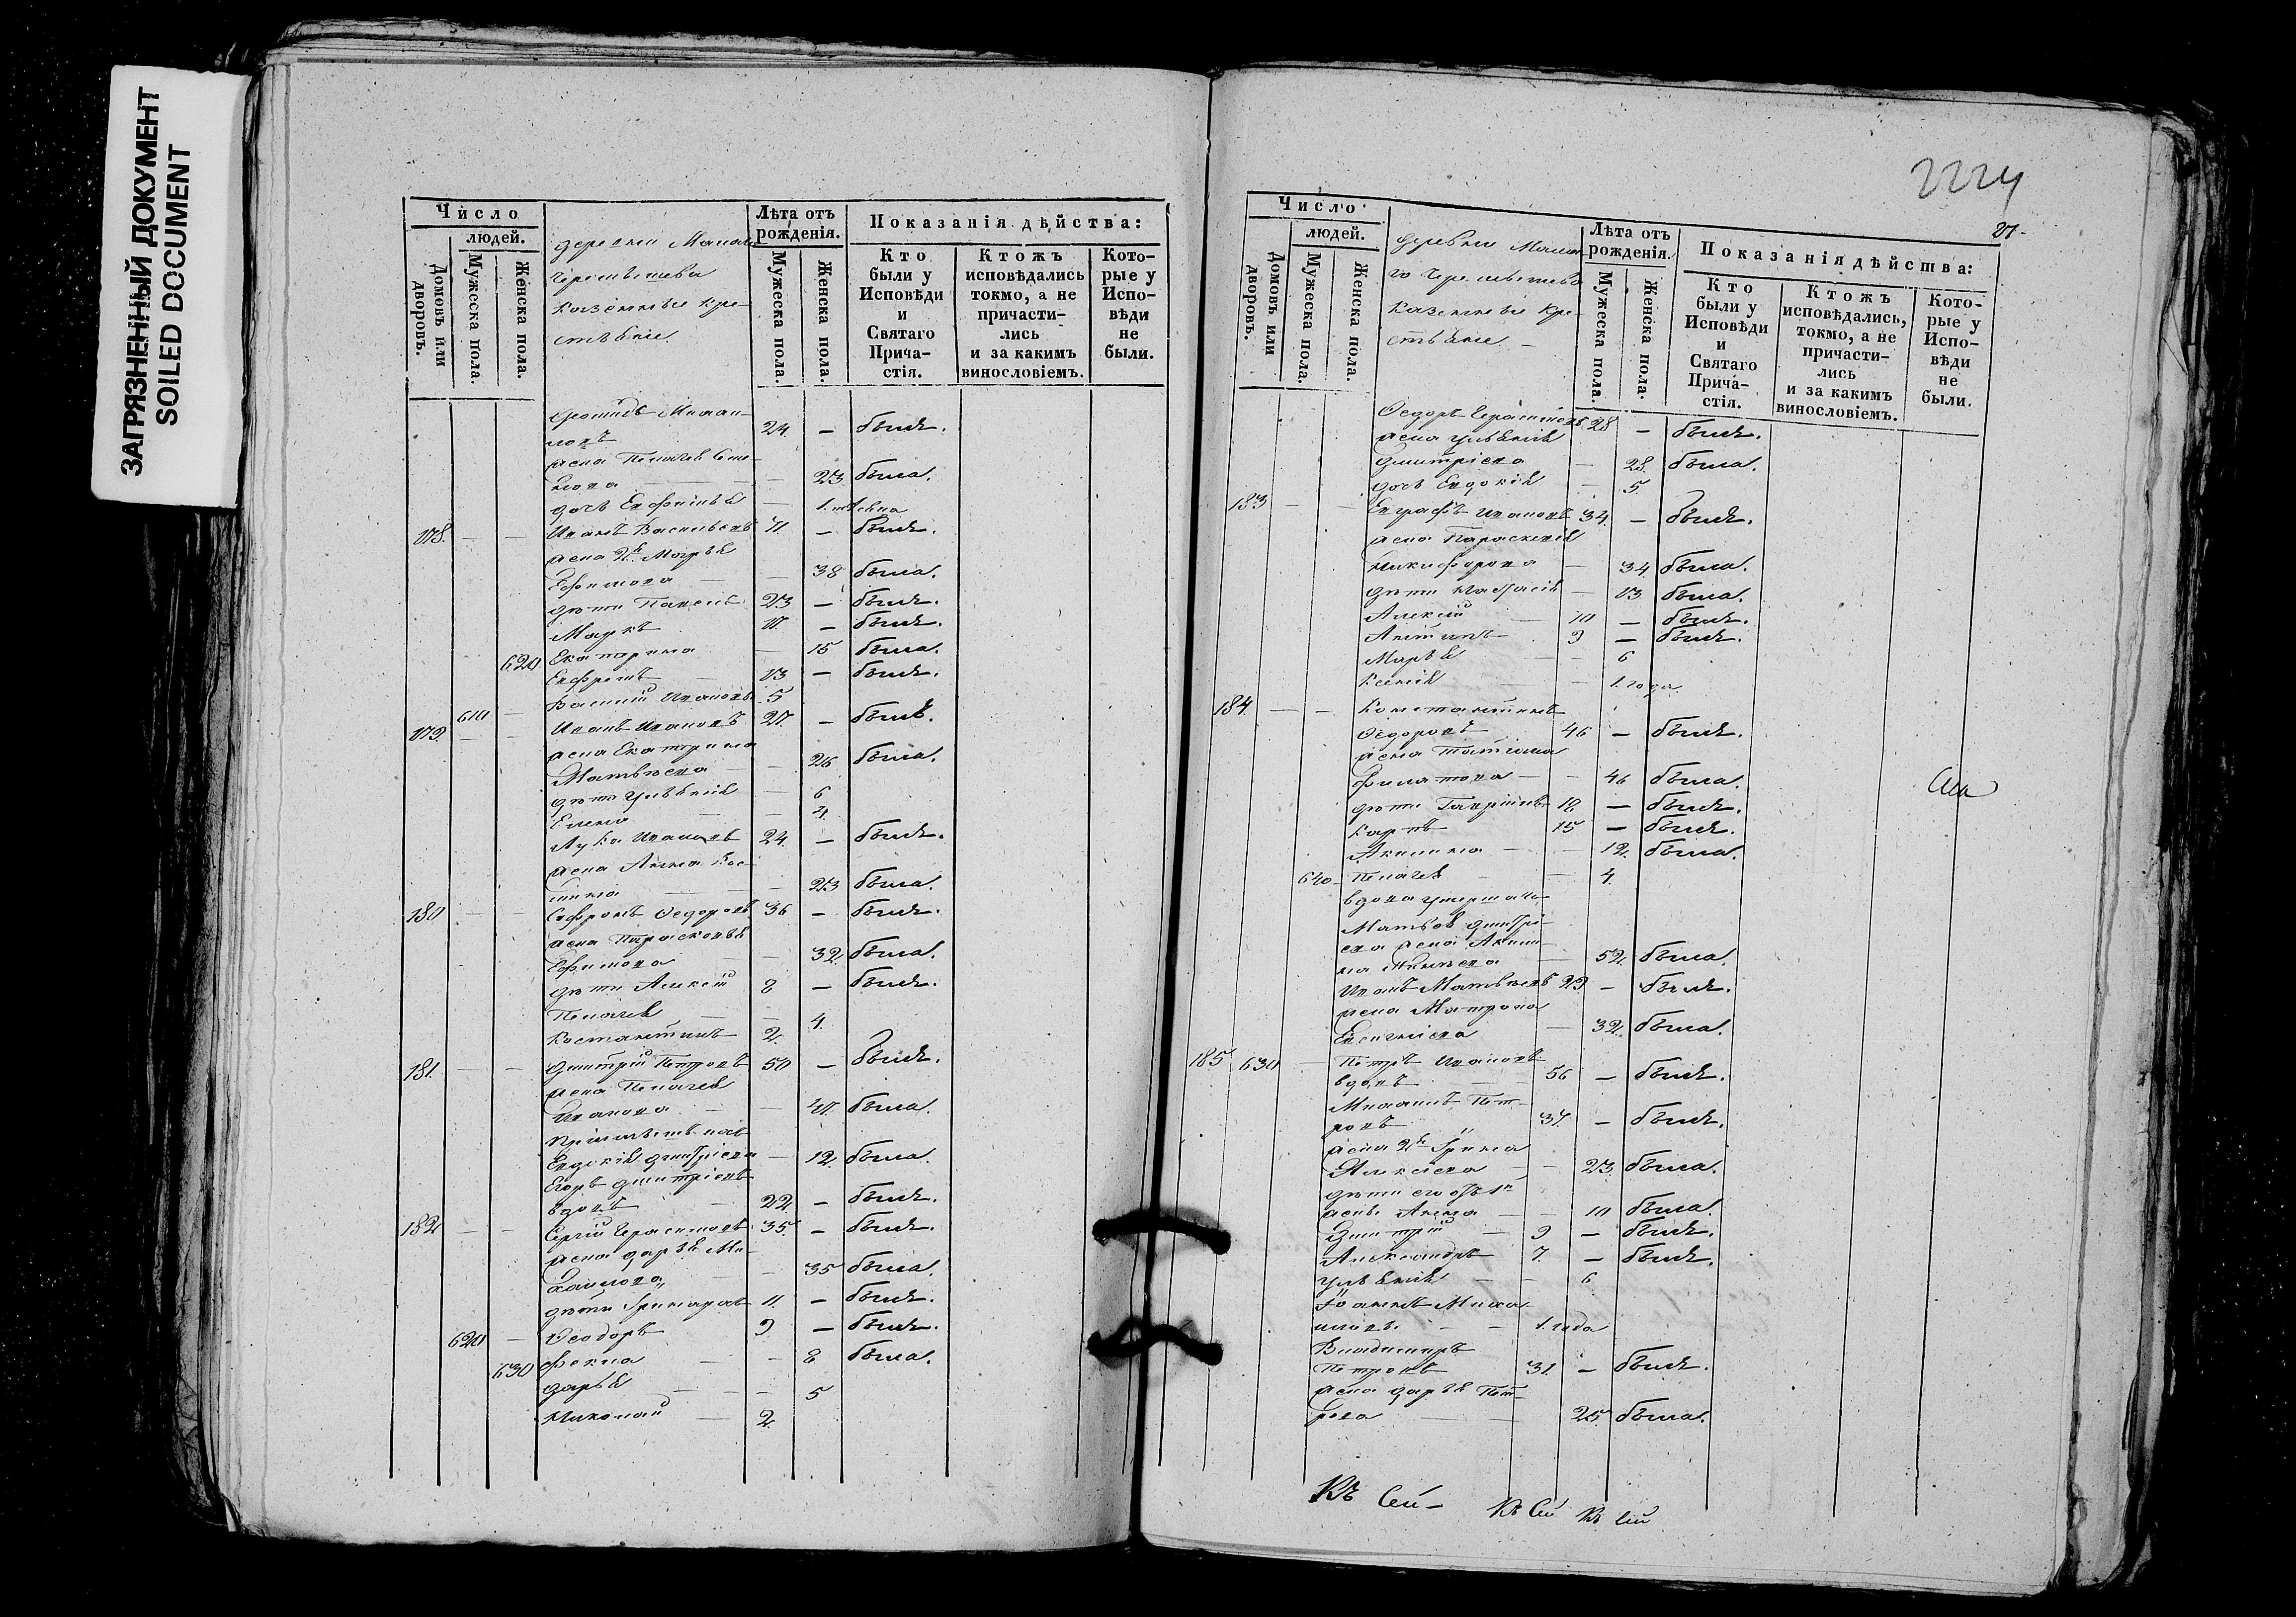 ЗАГРЯЗНЕННЫЙ ДОКУМЕНТ
SOILED DOCUMENT
Число
людей.
Домовъ или дворовъ.
Мужеска пола.
Женска пола.
деревни Малаго
Черемышева
Казенные кре-
стьяне.
Лѣта отъ рожденія.
Мужеска пола.
Женска пола.
Показанія дѣйства:
Кто были у Исповѣди и Святаго Прича-стія.
Ктожъ исповѣдались токмо, а не причасти-лись и за какимъ винословіемъ.
Кото-рые у Испо-вѣди не были.
24. — былъ.
жена Пелагея Семе-
нова — 23 была.
дочь
178. — — Иванъ Васильевъ — былъ.
жена 2я Марья
Ефимова — 38 была.
дѣти Павелъ 23 — былъ.
Марко — былъ.
620 Екатерина — 15 была.
Евфремъ — 13 — былъ.
610 — Василій Ивановъ 5
179. — — Иванъ Ивановъ — былъ.
жена Екатерина
Матвѣева — 26 была.
дѣти Ульянія — 6
Елена — 4.
Лука Ивановъ 24. — былъ.
жена Анна Кос-
мина — 23 была.
180 — — Софронъ Ѳедоровъ 36 — былъ.
жена Парасковья
Ефимова — 32. была.
дѣти Алексій 8 — былъ.
Пелагея — 4.
Костантинъ 2.
181. — — Дмитрій Петровъ 50 — былъ.
жена Пелагея
Иванова — была.
Евдокія Дмитріева — 12. была.
Егоръ Дмитріевъ
вдовъ — 22. — былъ.
182 — — Сергій Герасимовъ 35. — былъ.
жена Дарья Ми-
хайлова — 35 была.
дѣти 11. — былъ.
620 — Ѳеодоръ 9 — былъ.
630 Фекла — 8 была.
Дарья — 5
Николай — 2.
27.
Число
людей.
Домовъ или дворовъ.
Мужеска пола.
Женска пола.
деревни Мала-
го Черемышева
Казенные кре-
стьяне. —
Лѣта отъ рожденія.
Мужеска пола.
Женска пола.
Показанія дѣйства:
Кто были у Исповѣди и Святаго Прича-стія.
Ктожъ исповѣдались, токмо, а не причасти-лись и за какимъ винословіемъ.
Кото-рые у Испо-вѣди не были.
Ѳедоръ Герасимовъ 28 — былъ.
жена Ульянія
Дмитріева — 28. была.
дочь Евдокія — 5.
183 — — Евграфъ Ивановъ 34. — былъ.
жена Параскевія
Никифорова — 34. была.
дѣти — 13 была.
Алексій 10 — былъ.
Антипъ 9 — былъ.
Марья — 6
Ксенія — 1. года.
184. — — Константинъ
Ѳедоровъ 46 — былъ.
жена Татіана
Филатова — 46 была.
дѣти Гавріилъ 18. — былъ.
Карпъ 15 — былъ.
Акилина — 12. была.
640 Пелагея — 4.
вдова умершаго
Матвея Дмитрі-
ева жена Акили-
на — 52. была.
Иванъ Матвѣевъ 29 — былъ.
жена Матрона
Евсигніева — 32. была.
185 630 — Петръ Ивановъ
вдовъ — 56 — былъ.
Михаилъ Пет-
ровъ — 37. — былъ.
жена 2я Ирина
Алексіева — 23. была.
дѣти его отъ 1й
жены Анна — 10 была.
Дмитрій — 9 — былъ.
Александръ 7. — былъ.
Ульянія — 6
Іоаннъ Миха-
иловъ — 1. года
Владимиръ
Петровъ 31. — былъ.
жена Дарья Пет-
рова — 25. была.
Къ Сей —
Къ Сей Къ Сей